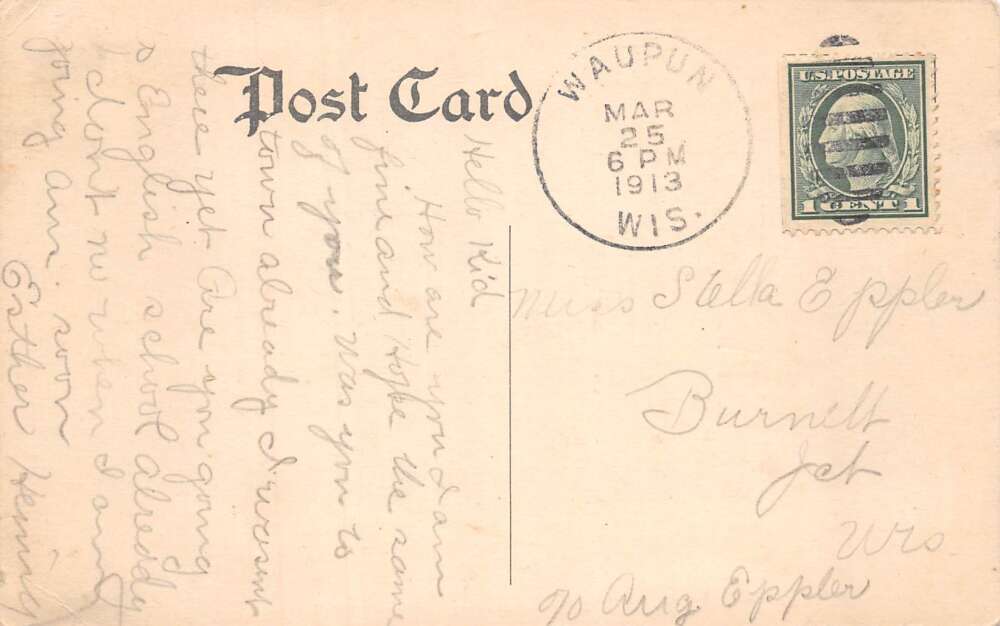 Post Card
WAUPUN
MAR
25
6 PM
1913
WIS.
U.S. POSTAGE
1 CENT 1
Miss Stella Eppler
Burnett
Jct
Wis
c/o Aug Eppler
Hello Kid
How are you I am
fine and Hope the same
of you. Was you to
town already I wasent
there yet. Are you going
to English school already
I dont no when I am
going am. soon
Esther Hening